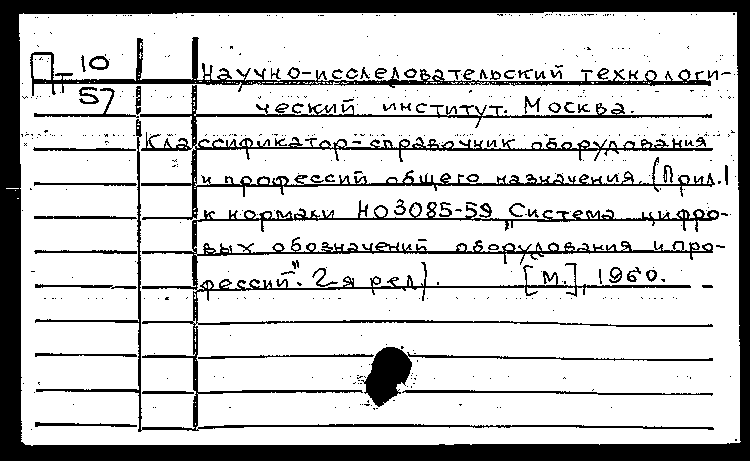 Пт 10
57
Научно-исследовательский технологи-
ческий институт. Москва.
Классификатор-справочник оборудования
и профессий общего назначения. (Прил.1
к нормали НО3085-59 "Система цифро-
вых обозначений оборудования и про-
фессий". 2-я ред.). [М.], 1960.